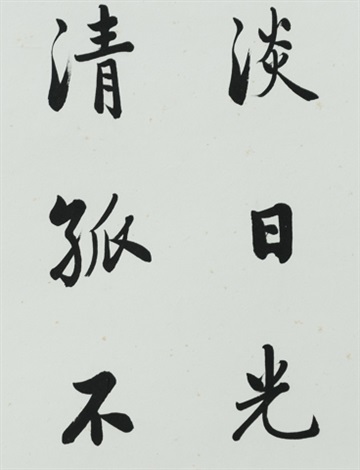 淡日光
清孤不